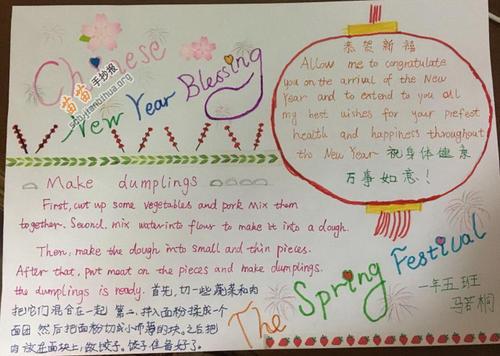 Chinese
New Year Blessing
苗苗手抄报
恭贺新福
Allow me to congratulate
you on the arrival of the New
Year and to extend to you all
my best wishes for your prefect
health and happiness throughout
the New Year 祝身体健康
万事如意！
Make dumplings
First, cut up some vegetables and pork Mix them
together. Second, mix water into flour to make it into a dough.
Then, make the dough into small and thin pieces.
After that, put meat on the pieces and make dumplings.
the dumplings is ready. 首先,切一些蔬菜和肉
把它们混合在一起 第二,拌入面粉揉成一个
面团 然后把面粉切成小而薄的块,之后把
肉放在面块上,做饺子。饺子准备好了。
The Spring Festival
一年五班
马若桐